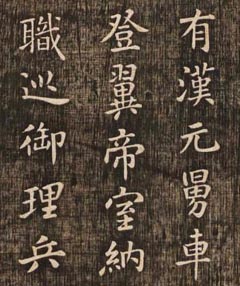 有漢元舅車
登翼帝室納
職巡御理兵